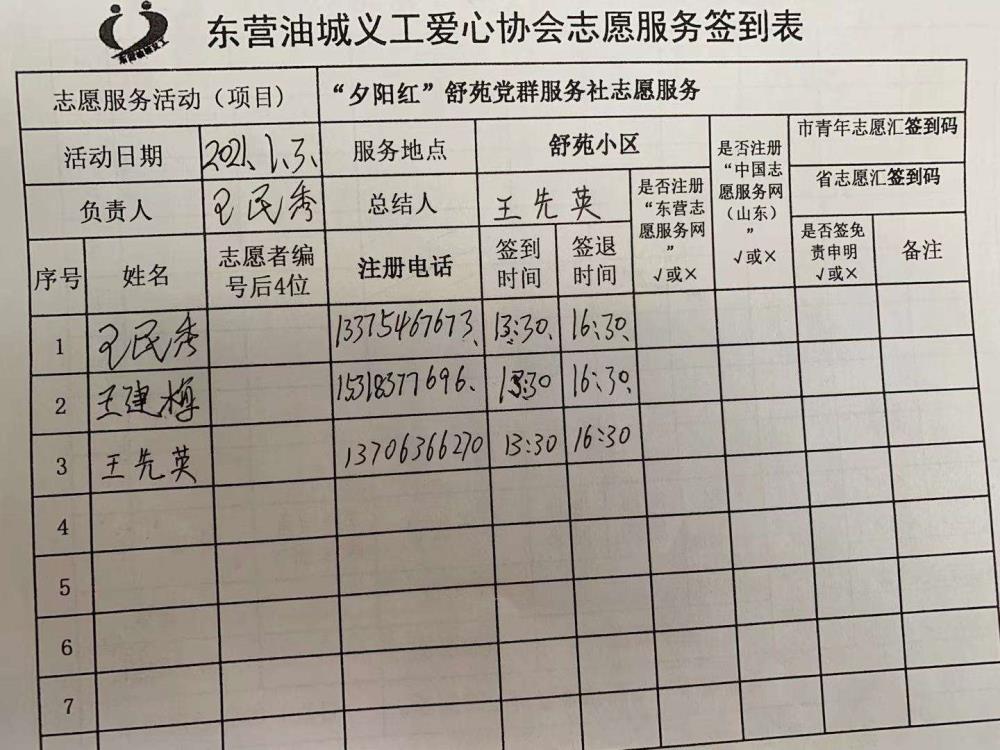 东营油城义工
东营油城义工爱心协会志愿服务签到表
志愿服务活动（项目） “夕阳红”舒苑党群服务社志愿服务
活动日期 2021.1.3. 服务地点 舒苑小区
负责人 王民秀 总结人 王先英
是否注册
“东营志
愿服务网
”
√或×
是否注册
“中国志
愿服务网
（山东）
”
√或×
市青年志愿汇签到码
省志愿汇签到码
是否签免
责申明
√或×
备注
序号 姓名 志愿者编
号后4位 注册电话 签到
时间 签退
时间
1 王民秀 13375467673、 13:30、 16:30、
2 王建梅 15318377696、 13:30 16:30、
3 王先英 13706366270 13:30 16:30
4
5
6
7